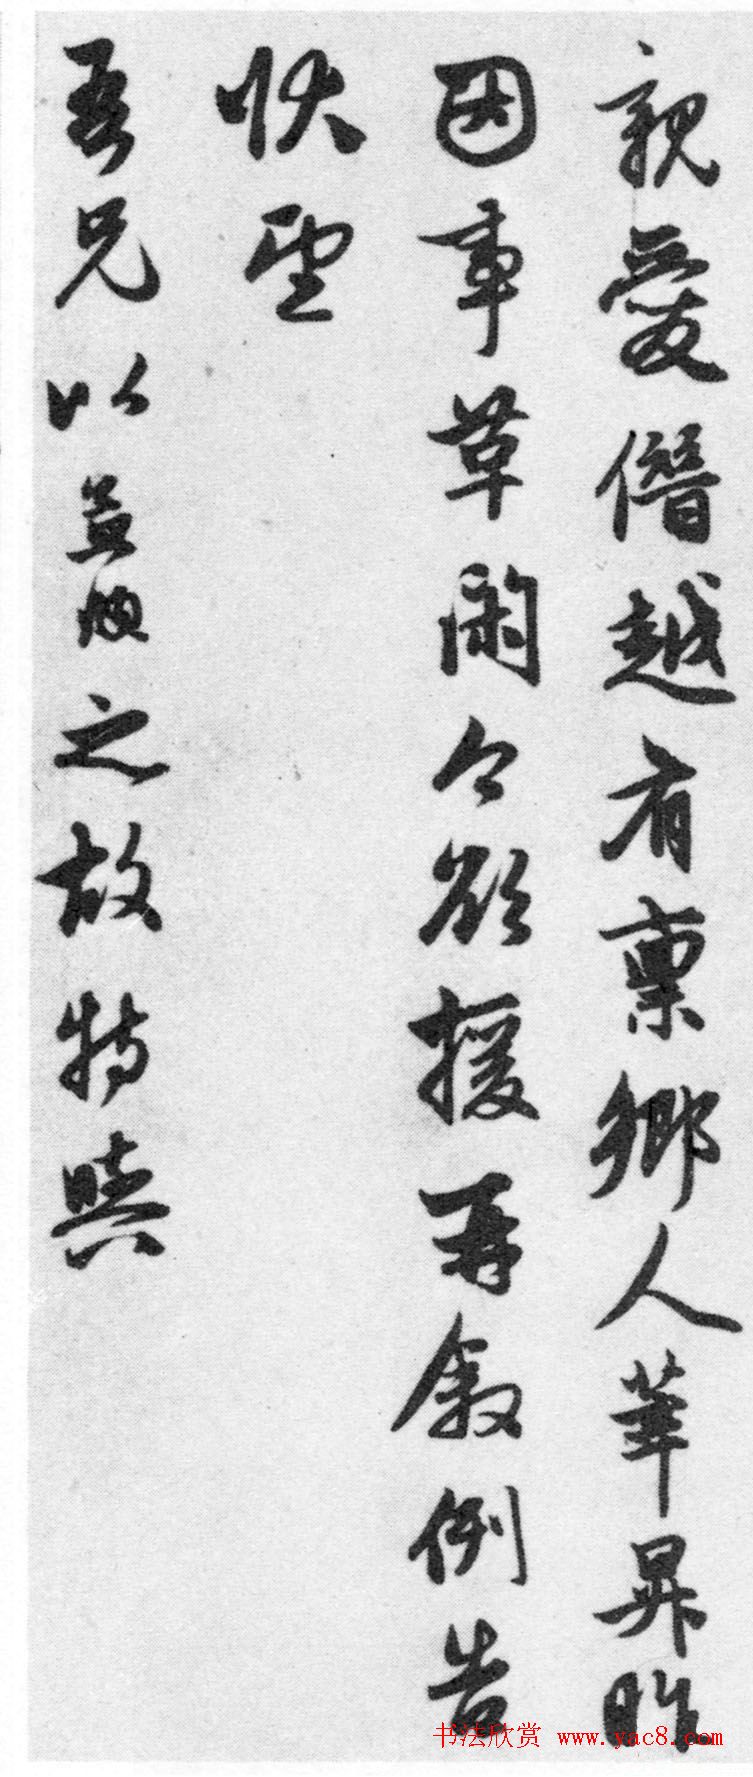 親愛僭越有稟鄉人華昇昨
因事革閑今欲援再敘例告
狀望
吾兄以孟頫之故特與
书法欣赏 www.yac8.com